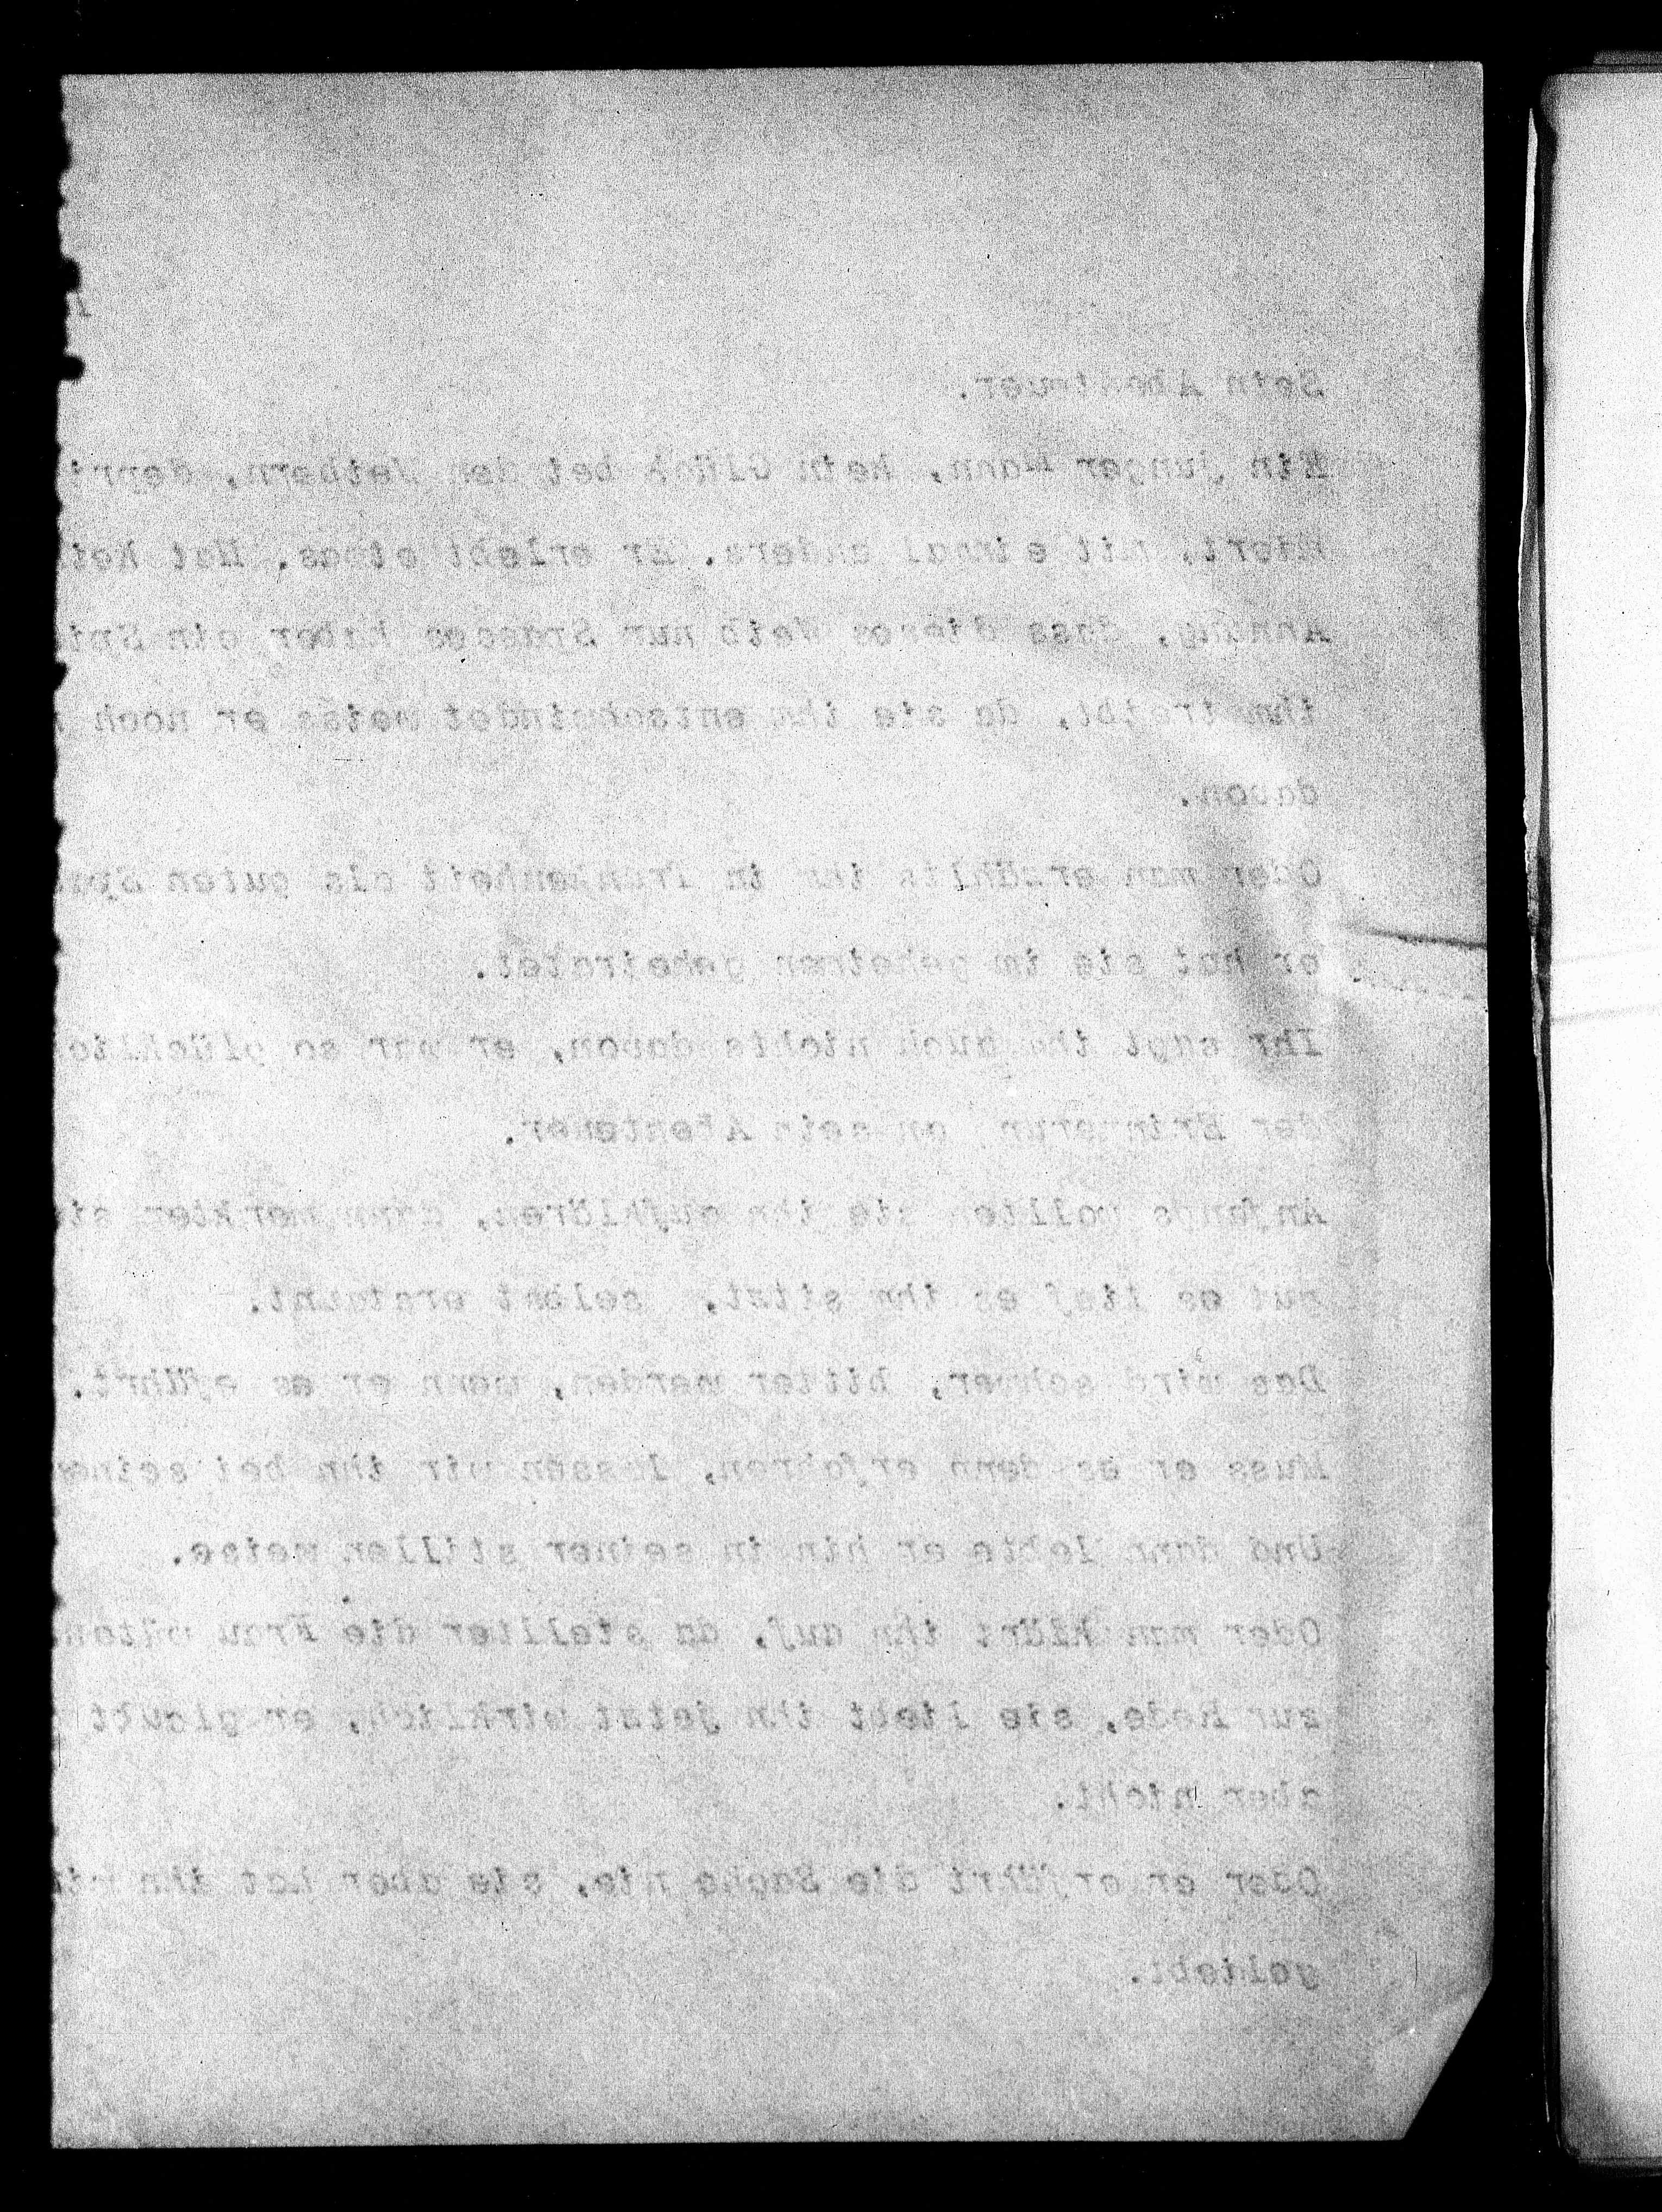 Sein Abenteuer.
Ein junger Mann, kein Glück bei den Weibern, depri
miert, mit einmal anders. Er erlebt etwas. Hat kei
Ahnung, dass dieses Weib nur Spasses halber ein Spi
ihm treibt, da sie ihm entschwindet weiss er noch
davon.
Oder man erzählts ihr in Trunkenheit als guten Spa
er hat sie im geheimen geheiratet.
Ihr sagt ihm auch nichts davon, er war so glücklic
der Erinnerung an sein Abenteuer.
Anfangs wollten sie ihn aufklären, dann merkten sie
gut es tief es ihm sitzt, selbst erstaunt.
Das wird schwer, bitter werden, wenn er es efährt.
Muss er es denn erfahren, lassen wir ihn bei seinem
Und dann lebte er hin in seiner stillen weise.
Oder man klärt ihn auf, da stellter die Frau
zur Rede, sie liebt ihn jetzt wirklich, er glaubt
aber nicht.
Oder er erfährt die Sache nie, sie aber hat ihn
geliebt.